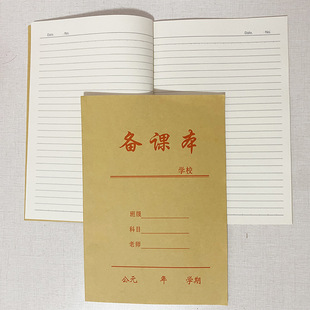 Date No.
Date No.
备课本
学校
班级
科目
老师
公元 年 学期